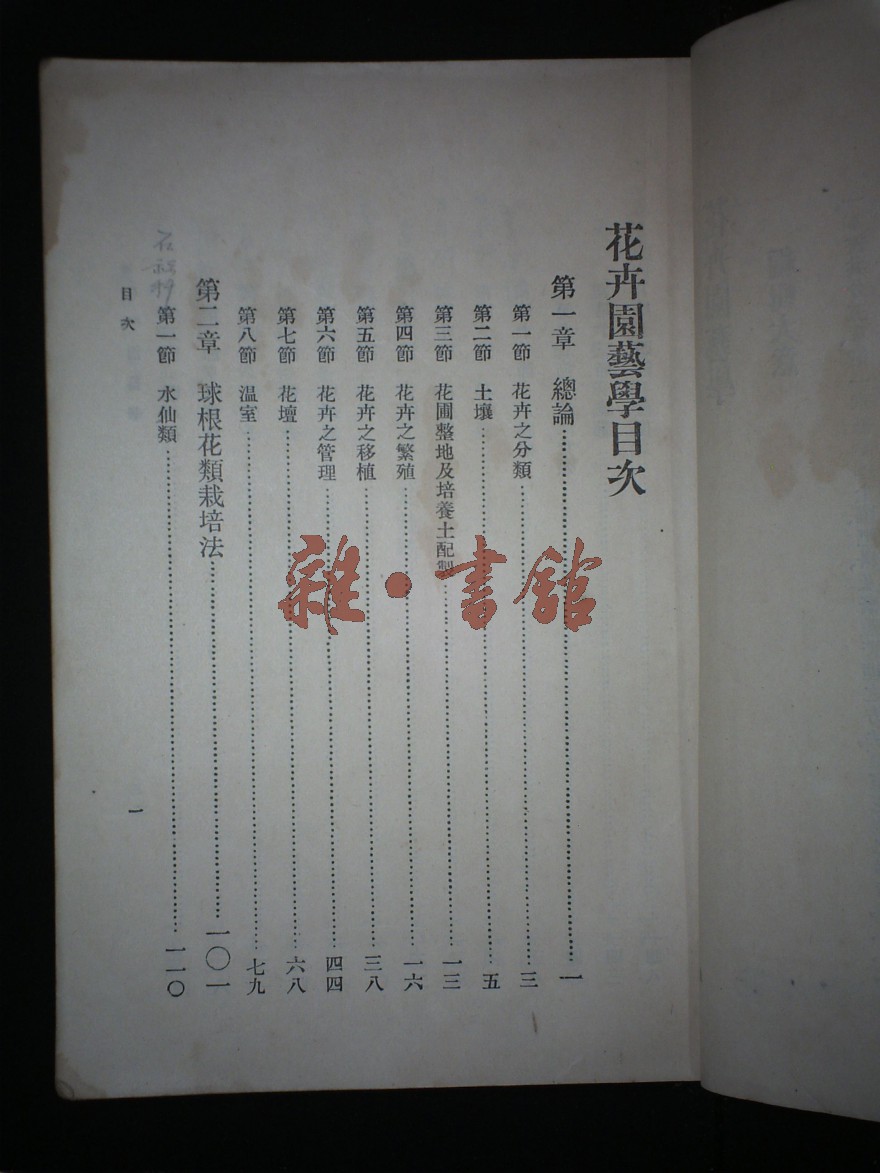 花卉園藝學目次
第一章 總論……一
第一節 花卉之分類……三
第二節 土壤……五
第三節 花圃整地及培養土配製……一三
第四節 花卉之繁殖……一六
第五節 花卉之移植……三八
第六節 花卉之管理……四四
第七節 花壇……六八
第八節 温室……七九
第二章 球根花類栽培法……一〇一
第一節 水仙類……一一〇
目次
一
雜·書館